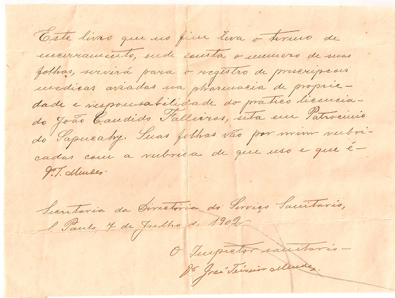 Este livro que no fim leva o termo de
encerramento, onde consta o numero de suas
folhas, servirá para o registro de prescripções
medicas aviadas na pharmacia de proprie-
dade e responsabilidade do prático licencia-
do João Candido Falleiros, sita em Patrocinio
do Sapucahy. Suas folhas vão por mim rubri-
cadas com a rubrica de que uso e que é -
J. T. Mendes
Secretaria da Directoria do Serviço Sanitario,
S. Paulo, 7 de Julho de 1902
O Inspector sanitario -
Dr. José Teixeira Mendes